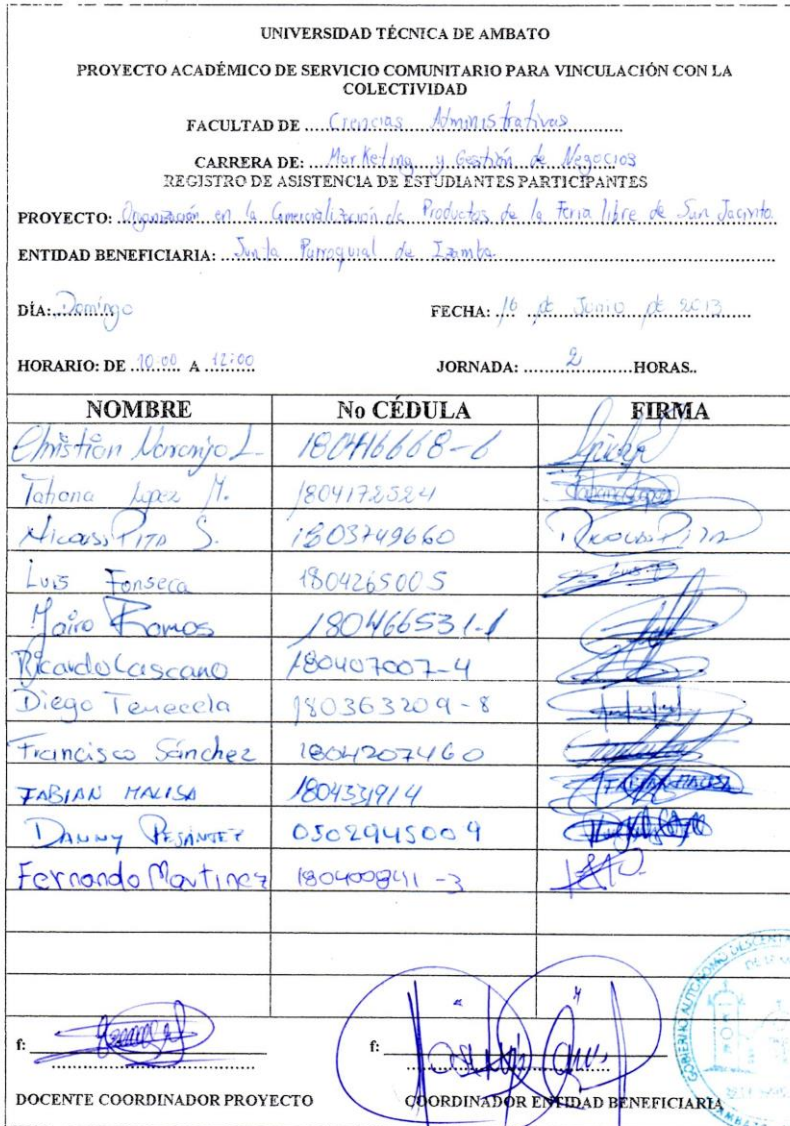 UNIVERSIDAD TÉCNICA DE AMBATO
PROYECTO ACADÉMICO DE SERVICIO COMUNITARIO PARA VINCULACIÓN CON LA
COLECTIVIDAD
FACULTAD DE ....Ciencias Administrativas....
CARRERA DE: ....Marketing y Gestión de Negocios
REGISTRO DE ASISTENCIA DE ESTUDIANTES PARTICIPANTES
PROYECTO: Organización en la Comercialización de Productos de la Feria libre de San Jacinto
ENTIDAD BENEFICIARIA: ....Junta Parroquial de Izamba
DÍA: Domingo FECHA: 16 de Junio de 2013
HORARIO: DE 10:00 A 12:00 JORNADA: 2 HORAS..
NOMBRE No CÉDULA FIRMA
Christian Naranjo L. 180416668-6
Tatiana Lopez M. 1804172524
Nicolas Pita S. 1803749660
Luis Fonseca 1804265005
Jairo Ramos 180466531-1
Ricardo Cascano 180407007-4
Diego Tenecela 180363209-8
Francisco Sánchez 1804207460
FABIAN MALISA FABIAN MALISA
DANNY PESÁNTEZ 0502945009
Fernando Martinez 180400841-3
f: f:
DOCENTE COORDINADOR PROYECTO COORDINADOR ENTIDAD BENEFICIARIA
GOBIERNO AUTONOMO